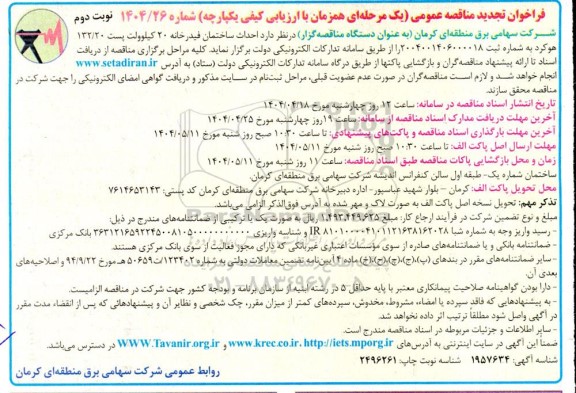 فراخوان تجدید مناقصه عمومی (یک مرحله‌ای همزمان با ارزیابی کیفی یکپارچه) شماره ۱۴۰۴/۲۶ نوبت دوم
شرکت سهامی برق منطقه‌ای کرمان (به عنوان دستگاه مناقصه‌گزار) درنظر دارد احداث ساختمان فیدرخانه ۲۰ کیلوولت پست ۱۳۲/۲۰
هوکرد به شماره ثبت ۲۰۰۴۰۰۱۴۰۶۰۰۰۰۱۸ را از طریق سامانه تدارکات الکترونیکی دولت برگزار نماید. کلیه مراحل برگزاری مناقصه از دریافت
اسناد تا ارائه پیشنهاد مناقصه‌گران و بازگشایی پاکتها از طریق درگاه سامانه تدارکات الکترونیکی دولت (ستاد) به آدرس www.setadiran.ir
انجام خواهد شد و لازم است مناقصه‌گران در صورت عدم عضویت قبلی، مراحل ثبت‌نام در سایت مذکور و دریافت گواهی امضای الکترونیکی را جهت شرکت در
مناقصه محقق سازند.
تاریخ انتشار اسناد مناقصه در سامانه: ساعت ۱۲ روز چهارشنبه مورخ ۱۴۰۴/۰۴/۱۸
آخرین مهلت دریافت مدارک اسناد مناقصه از سامانه: ساعت ۱۹ روز چهارشنبه مورخ ۱۴۰۴/۰۴/۲۵
آخرین مهلت بارگذاری اسناد مناقصه و پاکت‌های پیشنهادی: تا ساعت ۱۰:۳۰ صبح روز شنبه مورخ ۱۴۰۴/۰۵/۱۱
مهلت ارسال اصل پاکت الف: تا ساعت ۱۰:۳۰ صبح روز شنبه مورخ ۱۴۰۴/۰۵/۱۱
زمان و محل بازگشایی پاکات مناقصه طبق اسناد مناقصه: ساعت ۱۱ روز شنبه مورخ ۱۴۰۴/۰۵/۱۱
ساختمان شماره یک- طبقه اول سالن کنفرانس اندیشه شرکت سهامی برق منطقه‌ای کرمان.
محل تحویل پاکت الف: کرمان – بلوار شهید عباسپور- اداره دبیرخانه شرکت سهامی برق منطقه‌ای کرمان کد پستی: ۷۶۱۴۶۵۳۱۴۳
تذکر مهم: تحویل نسخه اصل پاکت الف به صورت لاک و مهر شده به آدرس فوق‌الذکر الزامی می‌باشد.
مبلغ و نوع تضمین شرکت در فرآیند ارجاع کار: مبلغ ۱.۴۹۳.۴۴۹.۶۲۵ ریال به صورت یک یا ترکیبی از ضمانتنامه‌های مندرج در ذیل:
- رسید واریز وجه به شماره شبا IR ۸۱۰۱۰۰۰۰۴۱۰۱۱۲۱۶۳۸۱۶۲۰۲۸ و شناسه واریزی ۳۶۳۱۲۱۶۵۹۲۲۴۵۰۰۸۱۰۵۰۰۰۰۰۰۰۰۰۰ بانک مرکزی
- ضمانتنامه بانکی و یا ضمانتنامه‌های صادره از سوی مؤسسات اعتباری غیربانکی که دارای مجوز فعالیت از سوی بانک مرکزی هستند.
- سایر ضمانتنامه‌های مقرر در بندهای (پ)،(ج)،(چ)،(ح)،(خ) ماده ۴ آیین‌نامه تضمین معاملات دولتی به شماره ۱۲۳۴۰۲/ت۵۰۶۵۹هـ مورخ ۹۴/۹/۲۲ و اصلاحیه‌های
بعدی آن.
- دارا بودن گواهینامه صلاحیت پیمانکاری معتبر با پایه حداقل ۵ در رشته ابنیه از سازمان برنامه و بودجه کشور جهت شرکت در مناقصه الزامیست.
- به پیشنهادهایی که فاقد سپرده یا امضاء، مشروط، مخدوش، سپرده‌های کمتر از میزان مقرر، چک شخصی و نظایر آن و پیشنهادهائی که پس از انقضاء مدت مقرر
در آگهی واصل شود مطلقاً ترتیب اثر داده نخواهد شد.
- سایر اطلاعات و جزئیات مربوطه در اسناد مناقصه مندرج است.
ضمناً این آگهی در سایت اینترنتی به آدرس‌های http://iets.mporg.ir، www.krec.co.ir و WWW.Tavanir.org.ir در دسترس می‌باشد.
شناسه آگهی: ۱۹۵۷۶۳۴ شناسه نوبت چاپ: ۲۴۹۶۲۶۱
روابط عمومی شرکت سهامی برق منطقه‌ای کرمان